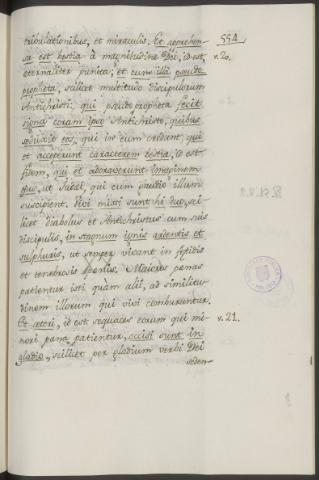 tribulationibus, et miraculis. Et apprehen-
sa est bestia à magnitudine Dei, id est,
eternaliter punita; et cum illa pseudo
propheta, scilicet multitudo discipulorum
Antichristi; qui pseudopropheta fecit
signa coram ipso Antichristo, quibus
seduxit eos, qui in eum credent, qui
et acceperunt caracterem bestiæ, id est
fidem, qui et adoraverunt imaginem
ejus, ut Judæi, qui cum gaudio illum
suscipient. Vivi missi sunt hi duo, sci-
licet diabolus et Antichristus cum suis
discipulis, in stagnum ignis ardentis et
sulphuris, ut semper vivant in fetidis
et tenebrosis penis. Maiores penas
patientur isti quam alii, ad similitu-
dinem illorum qui vivi comburentur.
Et cæteri, id est sequaces eorum qui mi-
nori pena patientur, occisi sunt in
gladio, scilicet per gladium verbi Dei
seden-
554
v. 20.
v. 21.